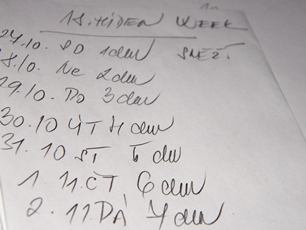 1S. HIDEN WEEK
27.10. SO 1 den SNEŽÍ
8.10. Ne 2 den
29.10. Po 3 den
30.10 ÚT 4 den
31.10 ST 5 den
1.11. ČT 6 den
2.11. PÁ 7 den